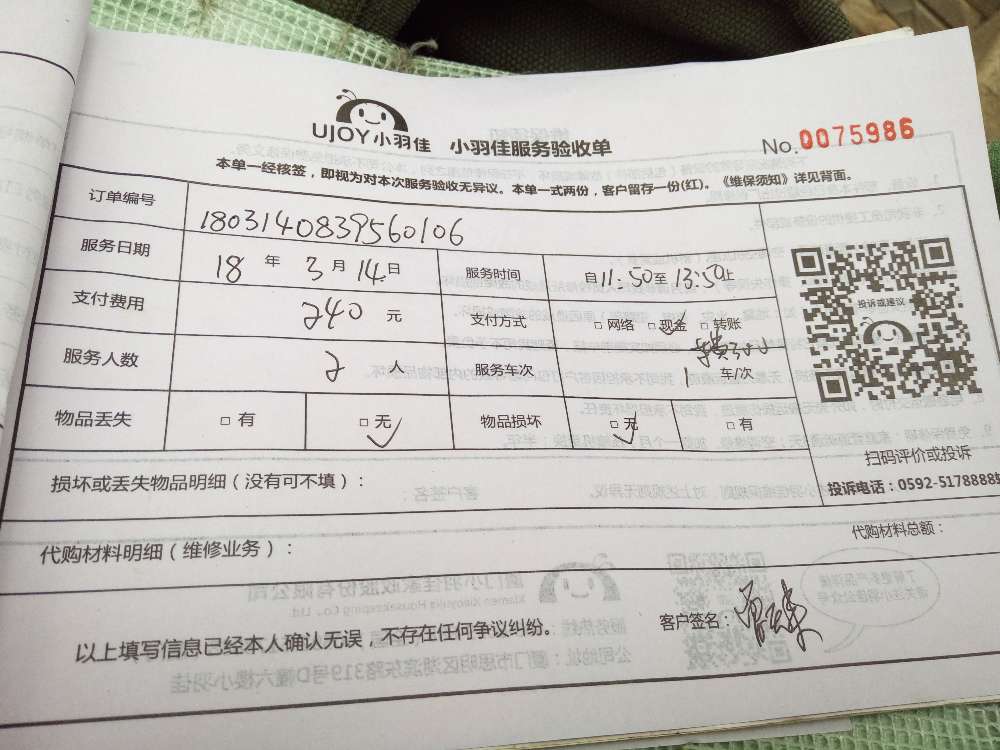 UJOY小羽佳 小羽佳服务验收单 No.0075986
本单一经核签，即视为对本次服务验收无异议。本单一式两份，客户留存一份(红)。《维保须知》详见背面。
订单编号 1803140839560106
服务日期 18 年 3 月 14 日 服务时间 自11:50至13:50止
支付费用 240 元 支付方式 □网络 □现金 □转账
服务人数 2 人 服务车次 1 车/次
物品丢失 □有 □无 ✓ 物品损坏 □无 ✓ □有
投诉或建议
扫码评价或投诉
投诉电话：0592-5178888
损坏或丢失物品明细（没有可不填）：
代购材料明细（维修业务）： 代购材料总额：
以上填写信息已经本人确认无误，不存在任何争议纠纷。 客户签名：